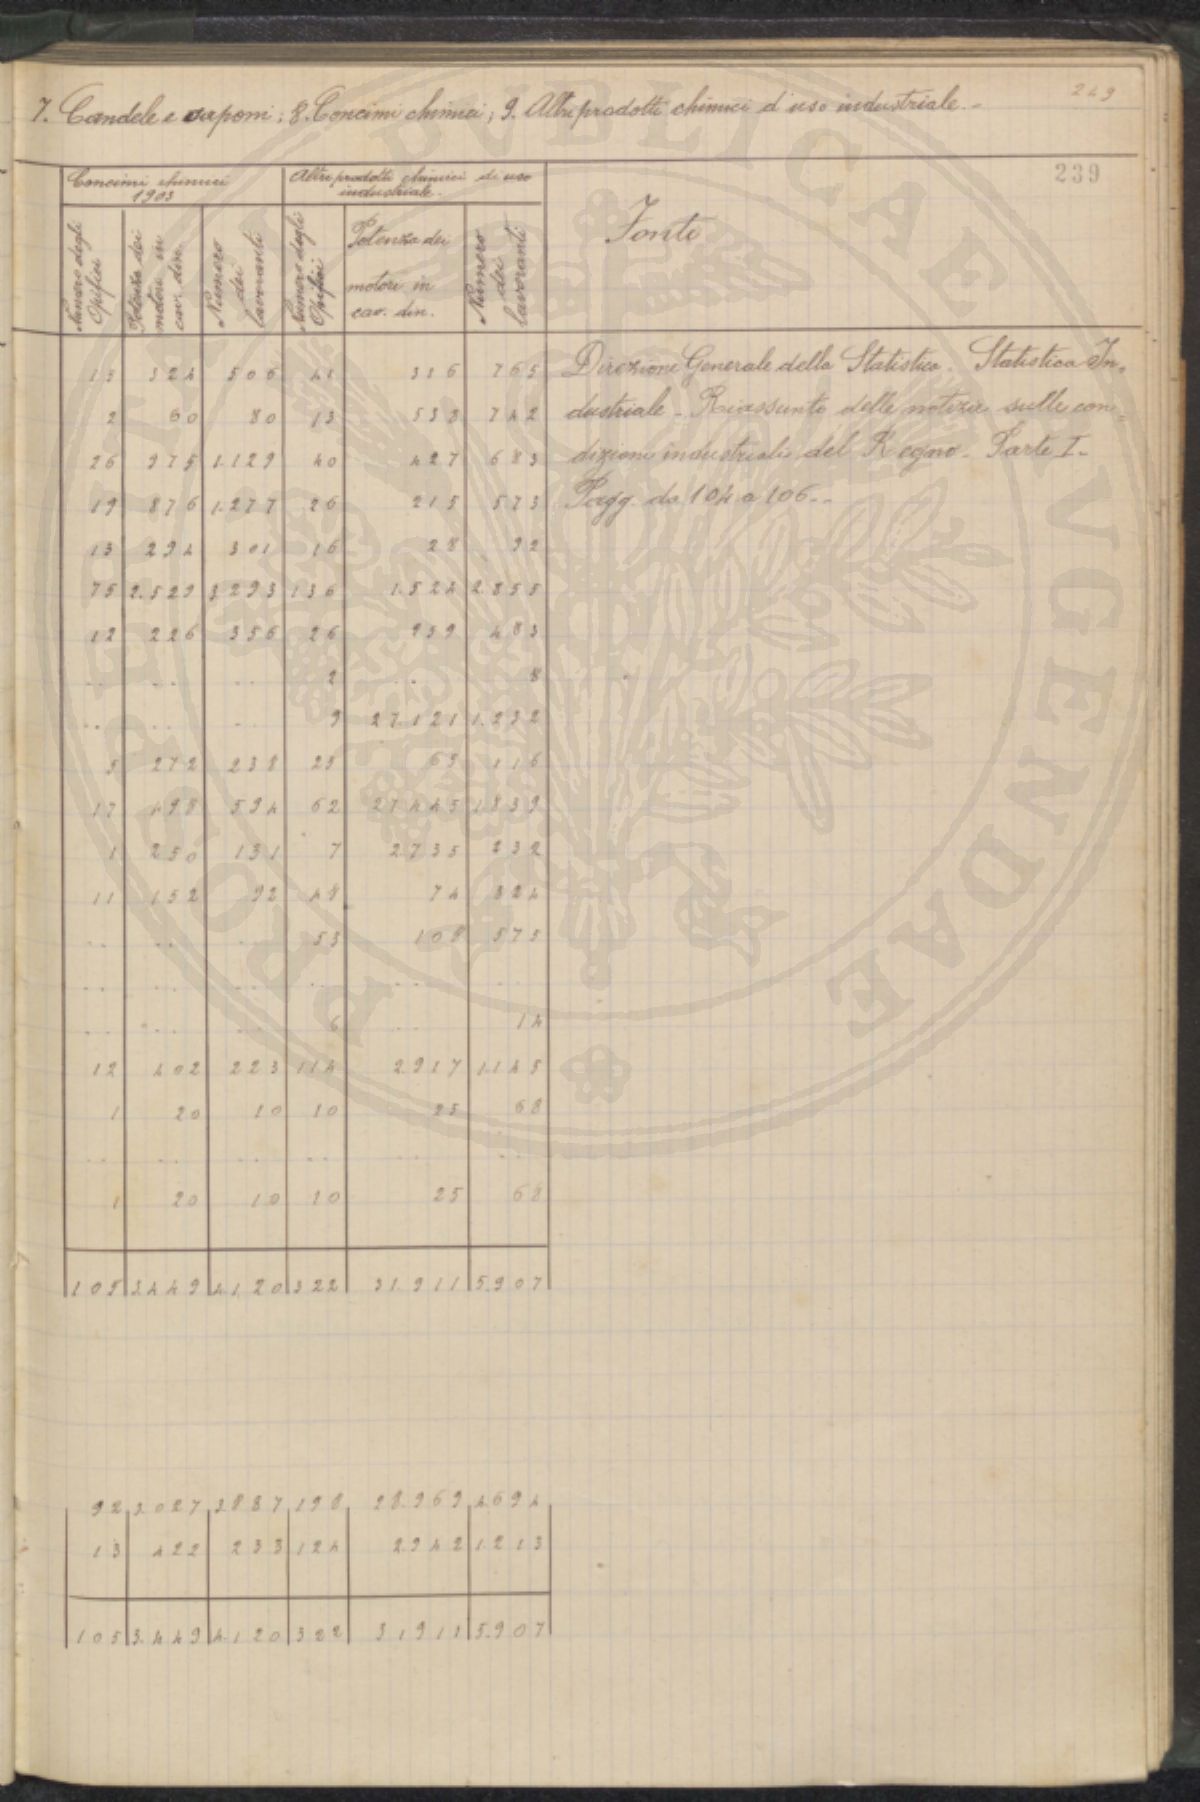 249
7. Candele e saponi; 8. Concimi chimici; 9. Altri prodotti chimici d'uso industriale.-
239
Concimi chimici
1903
Altri prodotti chimici di uso
industriale.
Numero degli
Opifici
Potenza dei
motori in
cav. din.
Numero
dei
lavoranti
Numero degli
Opifici
Potenza dei
motori in
cav. din.
Numero
dei
lavoranti
Fonti
Direzione Generale della Statistica. Statistica In-
dustriale - Riassunto delle notizie sulle con-
dizioni industriali del Regno - Parte I.-
Pagg. da 104 a 106.-
15 324 506 41 316 765
2 60 80 13 538 742
26 975 1.129 40 427 683
19 876 1.277 26 215 573
13 294 301 16 28 92
75 2.529 3.293 136 1.524 2.855
12 226 356 26 259 483
.. .. .. 2 .. 8
.. .. .. 9 27.121 1.232
5 272 238 25 65 116
17 498 594 62 27.445 1.839
1 250 131 7 2.735 232
11 152 92 48 74 324
.. .. .. 53 108 575
.. .. .. .. .. ..
.. .. .. 6 .. 14
12 402 223 114 2.917 1.145
1 20 10 10 25 68
.. .. .. .. .. ..
1 20 10 10 25 68
105 3.449 4.120 322 31.911 5.907
92 3.027 3.887 198 28.969 4.694
13 422 233 124 2.942 1.213
105 3.449 4.120 322 31.911 5.907